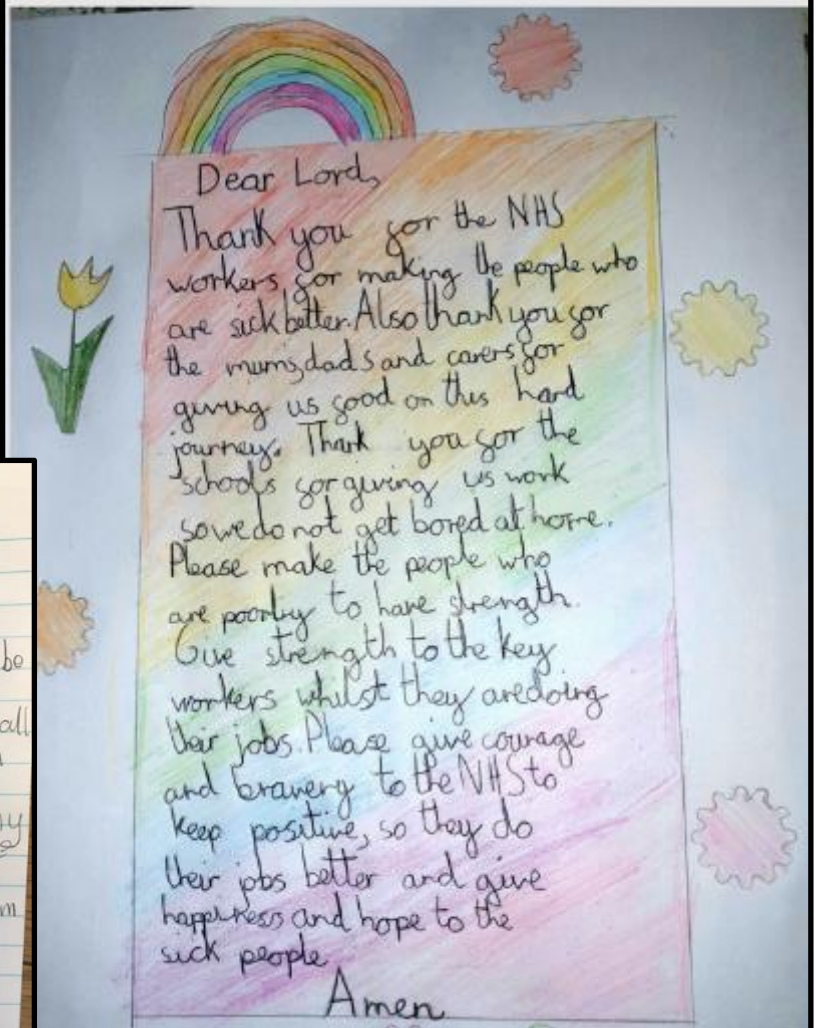 Dear Lord,
Thank you for the NHS
workers, for making the people who
are sick better. Also thank you for
the mums, dads and carers for
giving us food on this hard
journey. Thank you for the
schools for giving us work
so we do not get bored at home.
Please make the people who
are poorly to have strength.
Give strength to the key
workers whilst they are doing
their jobs. Please give courage
and bravery to the NHS to
keep positive, so they do
their jobs better and give
happiness and hope to the
sick people
Amen
be
all